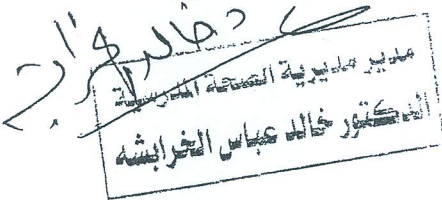 مدير مديرية الصحة المدرسية
الدكتور خالد عباس الخرابشه